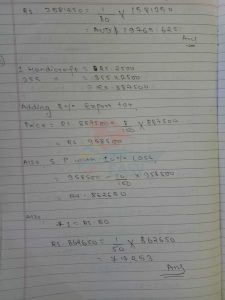 Rs. 1581250 = 1/80 × 1581250
= AUD $ 19765.625
Ans
1 Handicraft = Rs. 2500
355 " = 355 × 2500
= Rs. 887500
Adding 8% Export tax,
Price = Rs. 887500 + 8/100 × 887500
= Rs. 958500
Also S.P with 10% Loss,
= 958500 - 10/100 × 958500
= Rs. 862650
Also,
$1 = Rs. 50
Rs. 862650 = 1/50 × 862650
= $ 17253
Ans